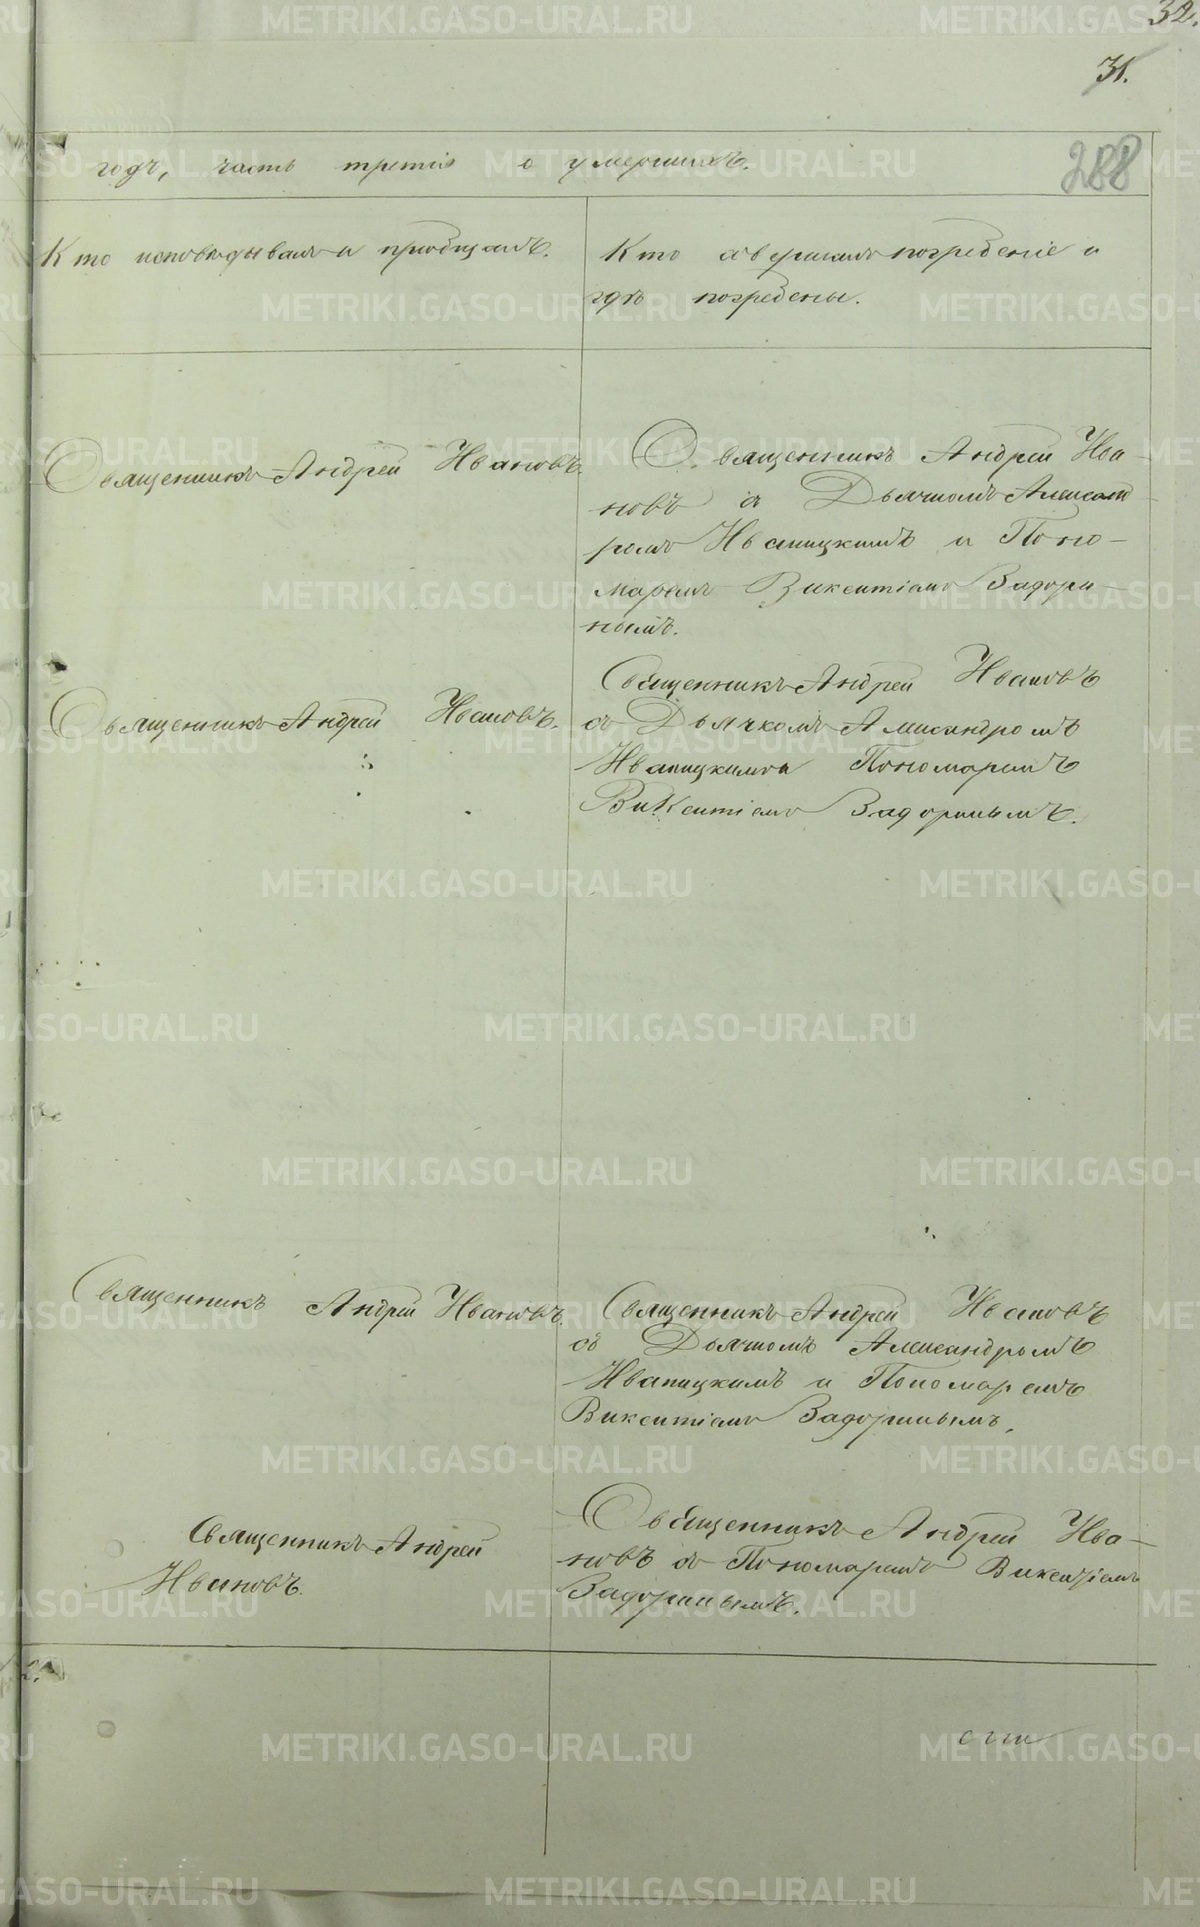 32.
31.
288
годъ, часть третія о умершихъ.
Кто исповѣдывалъ и пріобщалъ.
Кто совершалъ погребеніе и
гдѣ погребены.
Священникъ Андрей Ивановъ
Священникъ Андрей Ива-
новъ съ Дьячкомъ Александ
ромъ Иваницкимъ и Поно-
маремъ Викентіемъ Задори-
нымъ.
Священникъ Андрей Ивановъ.
Священникъ Андрей Ивановъ
съ Дьячкомъ Александромъ
Иваницкимъ и Пономаремъ
Викентіемъ Задоринымъ.
Священникъ Андрей Ивановъ.
Священникъ Андрей Ивановъ
съ Дьячкомъ Александромъ
Иваницкимъ и Пономаремъ
Викентіемъ Задоринымъ.
Священникъ Андрей
Ивановъ.
Священникъ Андрей Ива-
новъ съ Пономаремъ Викентіемъ
Задоринымъ.
METRIKI.GASO-URAL.RU